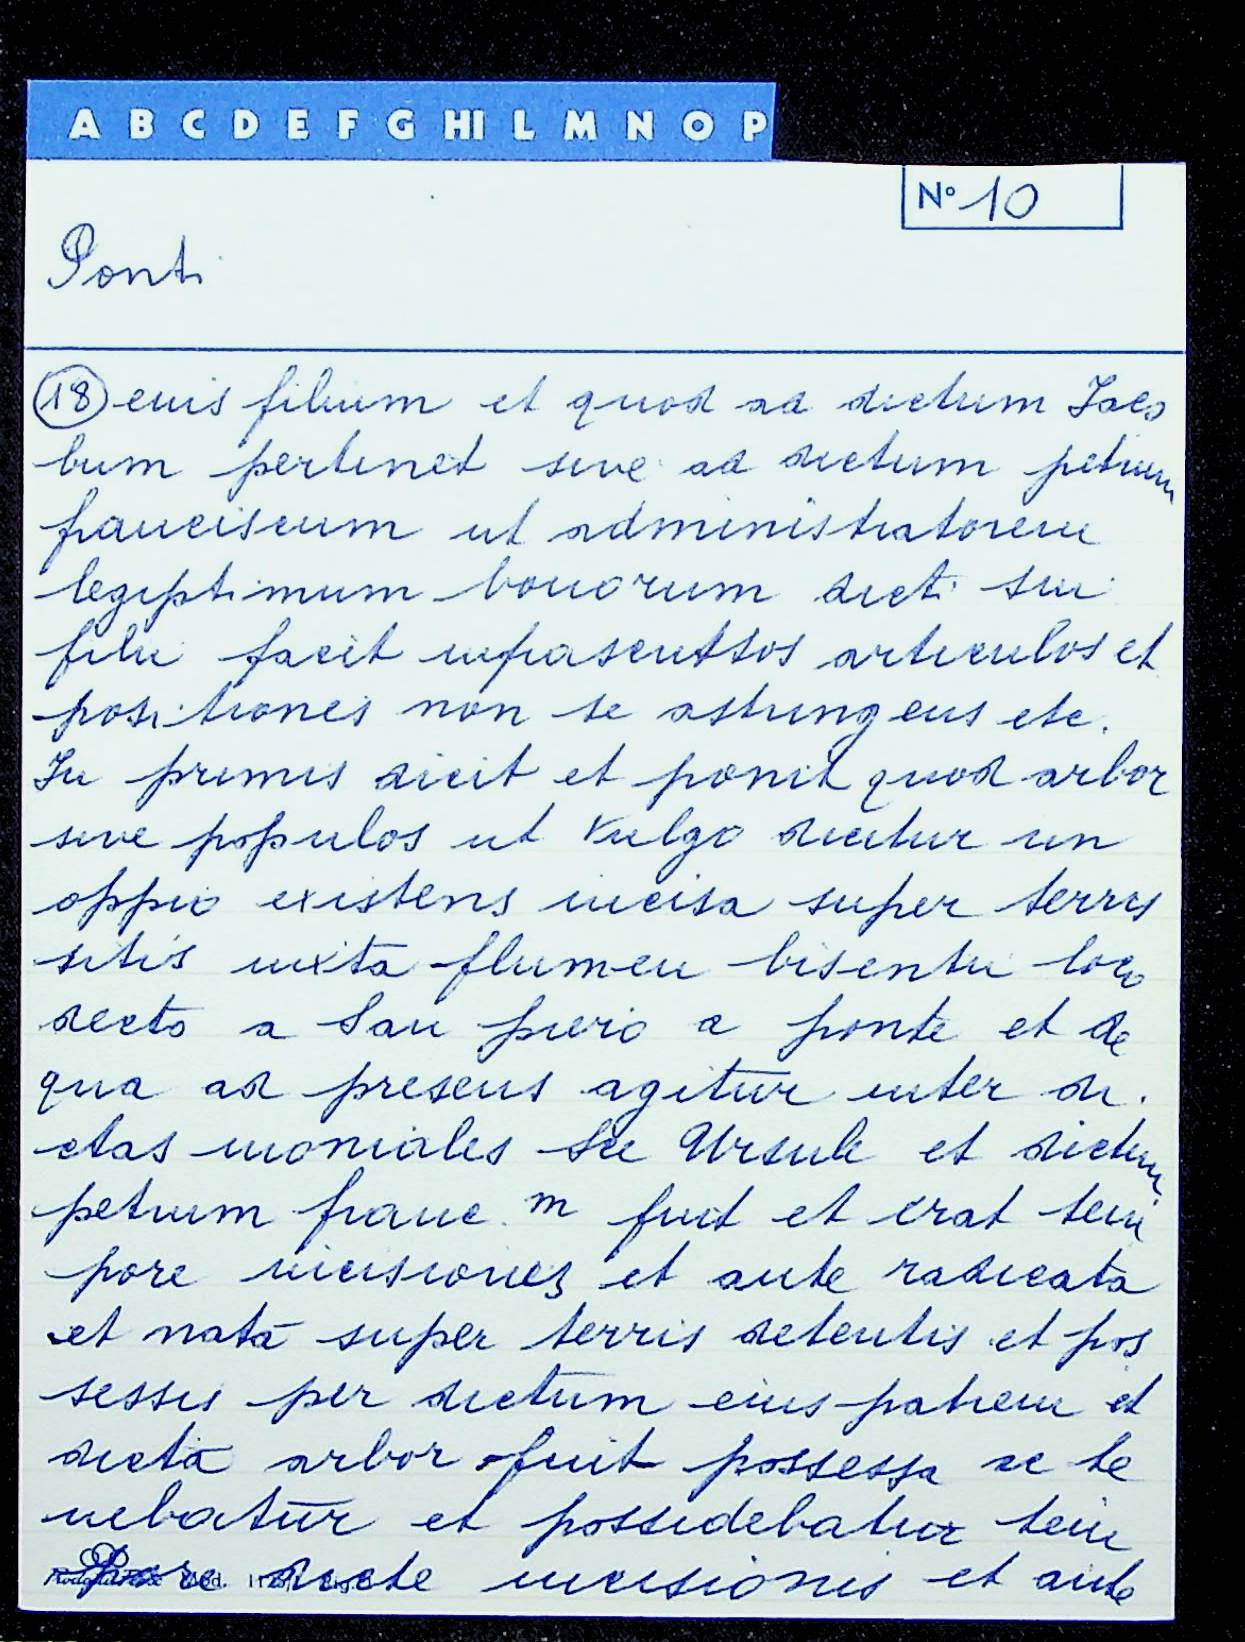 A B C D E F G HI L M N O P
Nº 10
Ponti
18 eius filium et quod ad dictum Jaco
bum pertinet sive ad dictum petrum
franciscum ut administratorem
legiptimum bonorum dicti sui
filii facit infrascuttsos articulos et
positiones non se astringens etc.
In primis dicit et ponit quod arbor
sive populos ut vulgo dicitur un
oppio existens incisa super terris
sitis iuxta flumen bisentii loco
decto a San piero a ponte et de
qua ad presens agitur inter di.
ctas moniales See Ursule et dictum
petrum franc.m fuit et erat tem
pore incisiones et ante radicata
et nata super terris detentis et pos
sessis per dictum eius patrem et
dicta arbor fuit possessa ac te
nebatur et possidebatur tem
pore dicte incisionis et ante